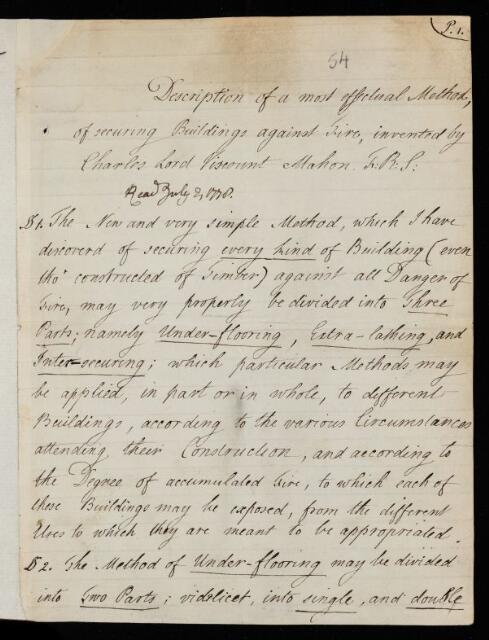 P. 1.
54
Description of a most effectual Method,
of securing Buildings against Fire, invented by
Charles Lord Viscount Mahon. F.R.S:
Read July 2, 1778.
§ 1. The New and very simple Method, which I have
discoverd of securing every kind of Building (even
tho' constructed of Timber) against all Danger of
Fire, may very properly be divided into Three
Parts; namely Under-flooring, Extra-lathing, and
Inter-securing; which particular Methods may
be applied, in part or in whole, to different
Buildings, according to the various Circumstances
attending their Construction, and according to
the Degree of accumulated Fire, to which each of
these Buildings may be exposed, from the different
Uses to which they are meant to be appropriated.
§ 2. The Method of Under-flooring may be divided
into Two Parts; videlicet, into single, and double